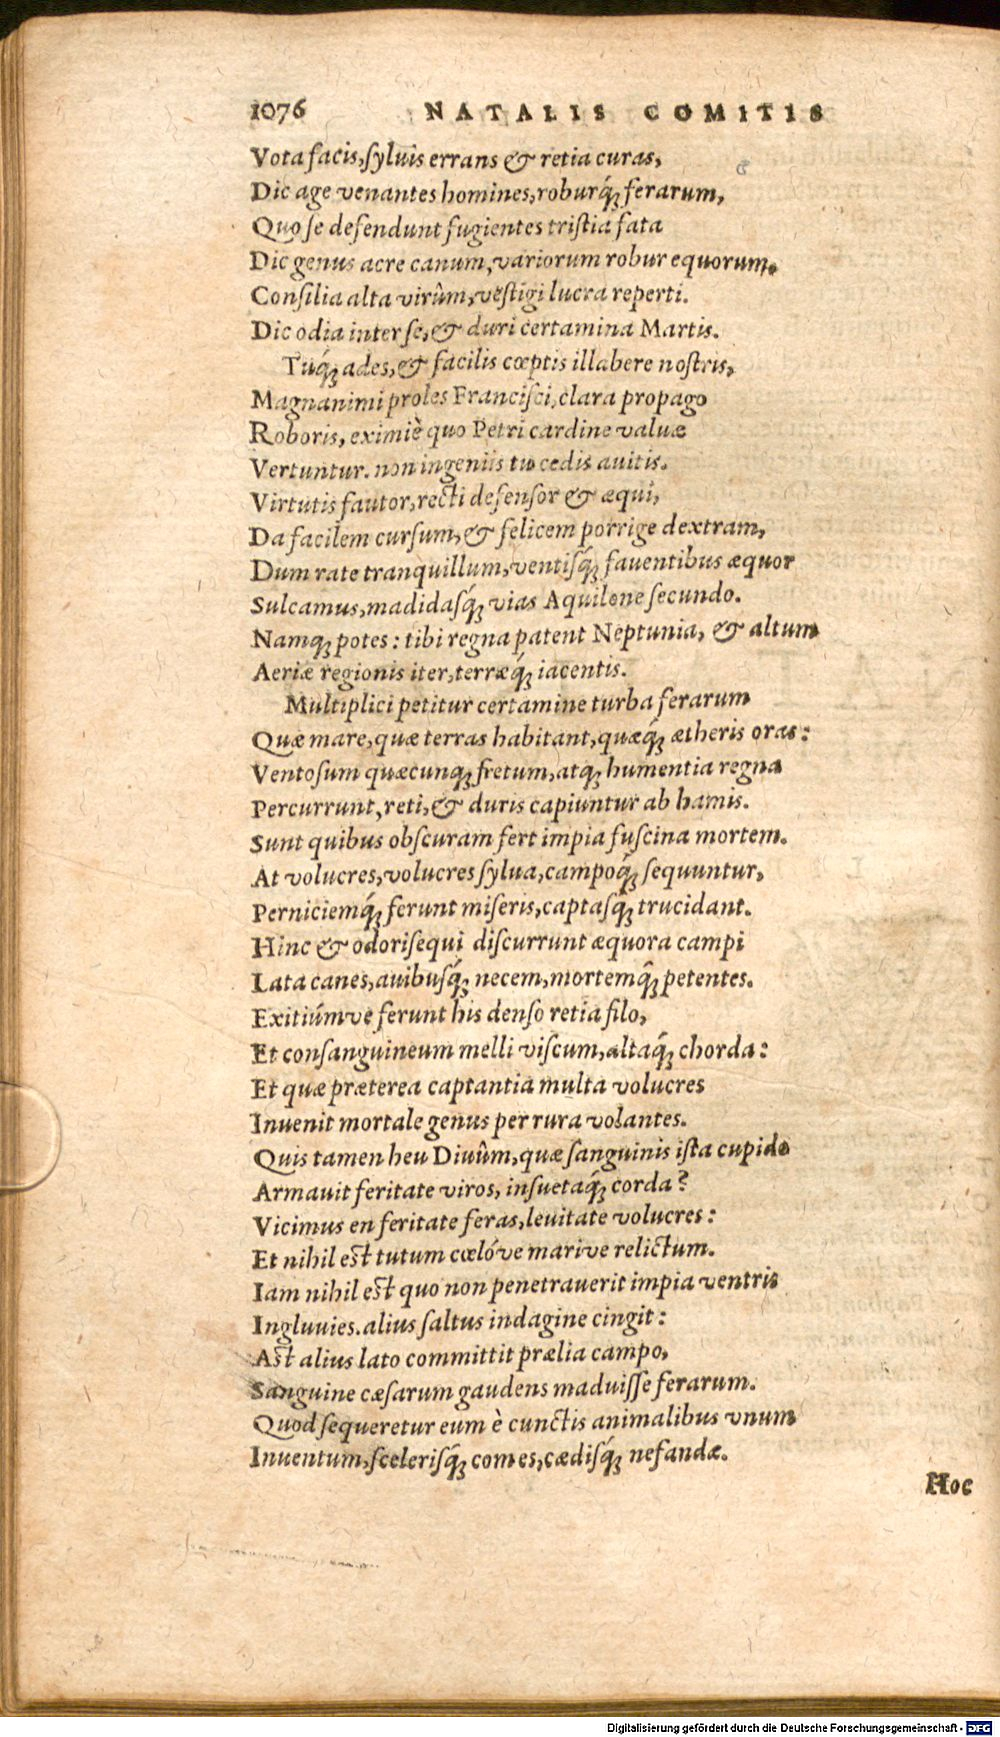 1076 NATALIS COMITIS
Vota facis, ſyluis errans & retia curas,
Dic age venantes homines, roburq́; ferarum,
Quo ſe defendunt fugientes triſtia fata
Dic genus acre canum, variorum robur equorum.
Conſilia alta virûm, veſtigi lucra reperti.
Dic odia inter ſe, & duri certamina Martis.
Tuq́; ades, & facilis cœptis illabere noſtris,
Magnanimi proles Franciſci, clara propago
Roboris, eximiè quo Petri cardine valuæ
Vertuntur. non ingeniis tu cedis auitis.
Virtutis fautor, recti defenſor & æqui,
Da facilem curſum, & felicem porrige dextram,
Dum rate tranquillum, ventiſq́; fauentibus æquor
Sulcamus, madidaſq́; vias Aquilone ſecundo.
Namq; potes: tibi regna patent Neptunia, & altum
Aeriæ regionis iter, terræq́; iacentis.
Multiplici petitur certamine turba ferarum
Quæ mare, quæ terras habitant, quæq́; ætheris oras:
Ventoſum quæcunq; fretum, atq; humentia regna
Percurrunt, reti, & duris capiuntur ab hamis.
Sunt quibus obſcuram fert impia fuſcina mortem.
At volucres, volucres ſylua, campoq́; ſequuntur,
Perniciemq́; ferunt miſeris, captaſq́; trucidant.
Hinc & odoriſequi diſcurrunt æquora campi
Lata canes, auibuſq́; necem, mortemq̂; petentes.
Exitiúmve ferunt his denſo retia filo,
Et conſanguineum melli viſcum, altaq́; chorda:
Et quæ præterea captantia multa volucres
Inuenit mortale genus per rura volantes.
Quis tamen heu Diuûm, quæ ſanguinis iſta cupido
Armauit feritate viros, inſuetaq́; corda?
Vicimus en feritate feras, leuitate volucres:
Et nihil eſt tutum cœlóve marive relictum.
Iam nihil eſt quo non penetrauerit impia ventris
Ingluuies. alius ſaltus indagine cingit:
Aſt alius lato committit prælia campo,
Sanguine cæſarum gaudens maduiſſe ferarum.
Quod ſequeretur eum è cunctis animalibus vnum
Inuentum, ſceleriſq́; comes, cædiſq́; nefandæ.
Hoc
Digitalisierung gefördert durch die Deutsche Forschungsgemeinschaft - DFG